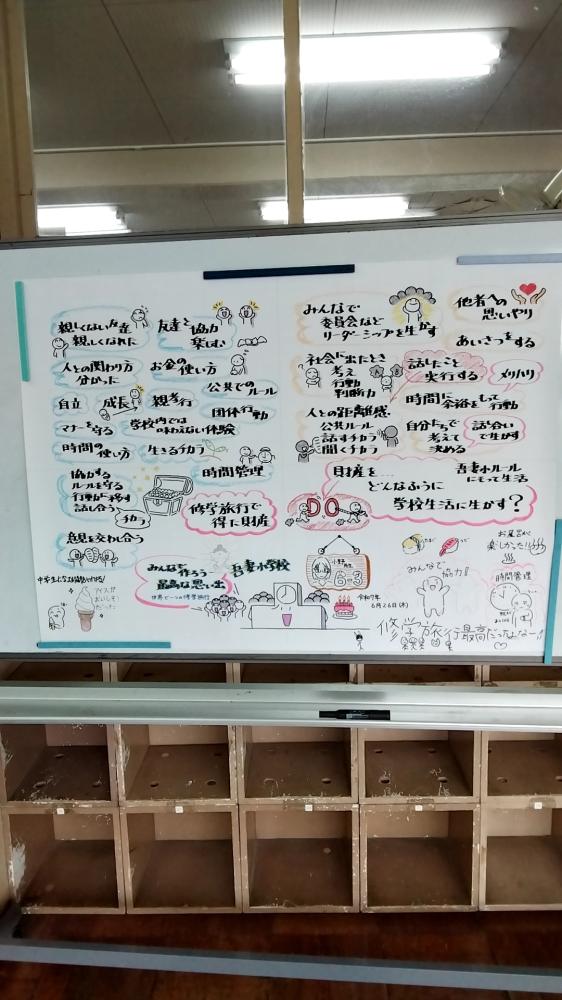 親しくない友達
親しくなれた
友達と
協力
楽しむ
人との関わり方
分かった
お金の
使い方
公共での
ルール
自立
成長
親孝行
団体行動
マナーを守る
学校内では
味わえない体験
時間の
使い方
生きるチカラ
協力する
ルールを守る
行動に移す
話し合う
チカラ
時間管理
修学旅行で
得た財産
意見を交わし合う
みんなで作ろう
最高な思い出
世界で一つの修学旅行
吾妻小学校
アイスが
おいしそう
だった
みんなで
委員会など
リーダーシップを生かす
他者への
思いやり
あいさつをする
社会に出たとき
考え
行動
判断力
A
B
話したこと
実行する
メリハリ
時間に
余裕をもって
行動
人との距離感
公共ルール
話すチカラ
聞くチカラ
自分たちで
考えて
決める
話合い
で生かす
財産を…
どんなふうに
学校生活に生かす?
吾妻小ルール
にもって生活
DO
6-3
令和7年
6月26日(木)
お風呂が
楽しかった!!
みんなで
協力!!
時間管理
修学旅行最高だったよなー!!